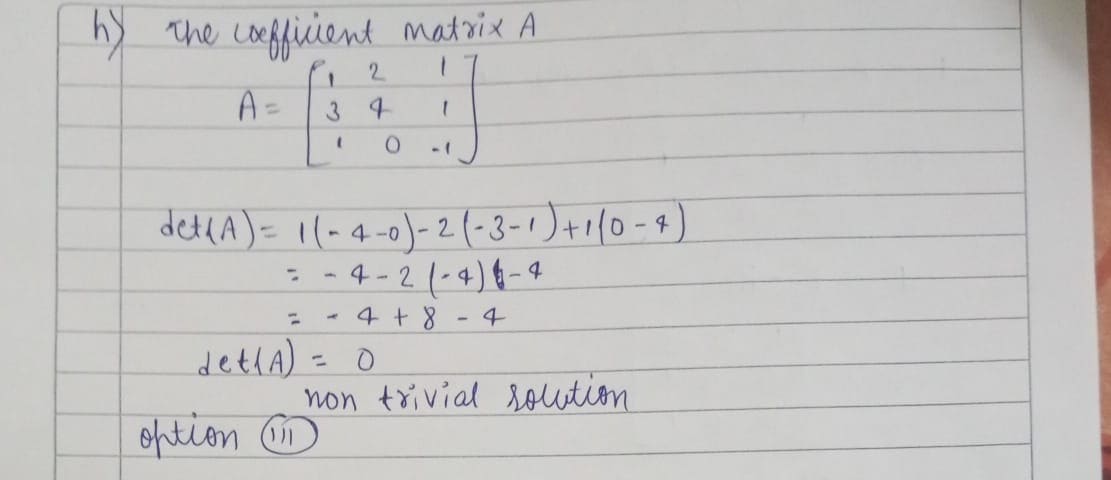 h) The coefficient matrix A
1 2 1
A = 3 4 1
1 0 -1
det(A) = 1(-4-0)-2(-3-1)+1(0-4)
= -4-2(-4)-4
= -4+8-4
det(A) = 0
non trivial solution
option (iii)